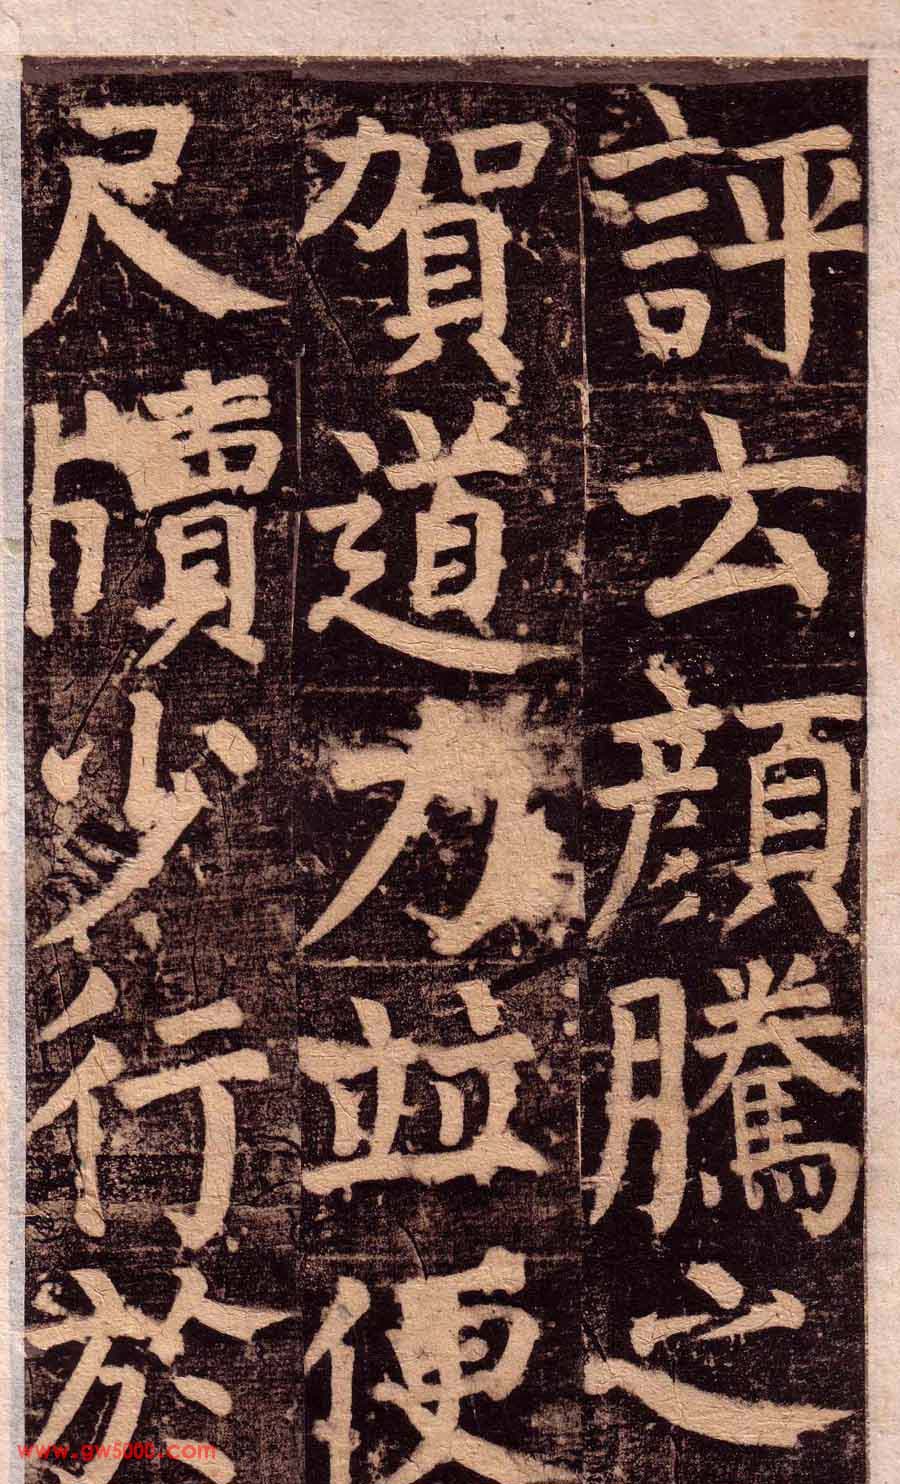 評云顏騰之
賀道力並便
尺牘少行於
www.gw5000.com